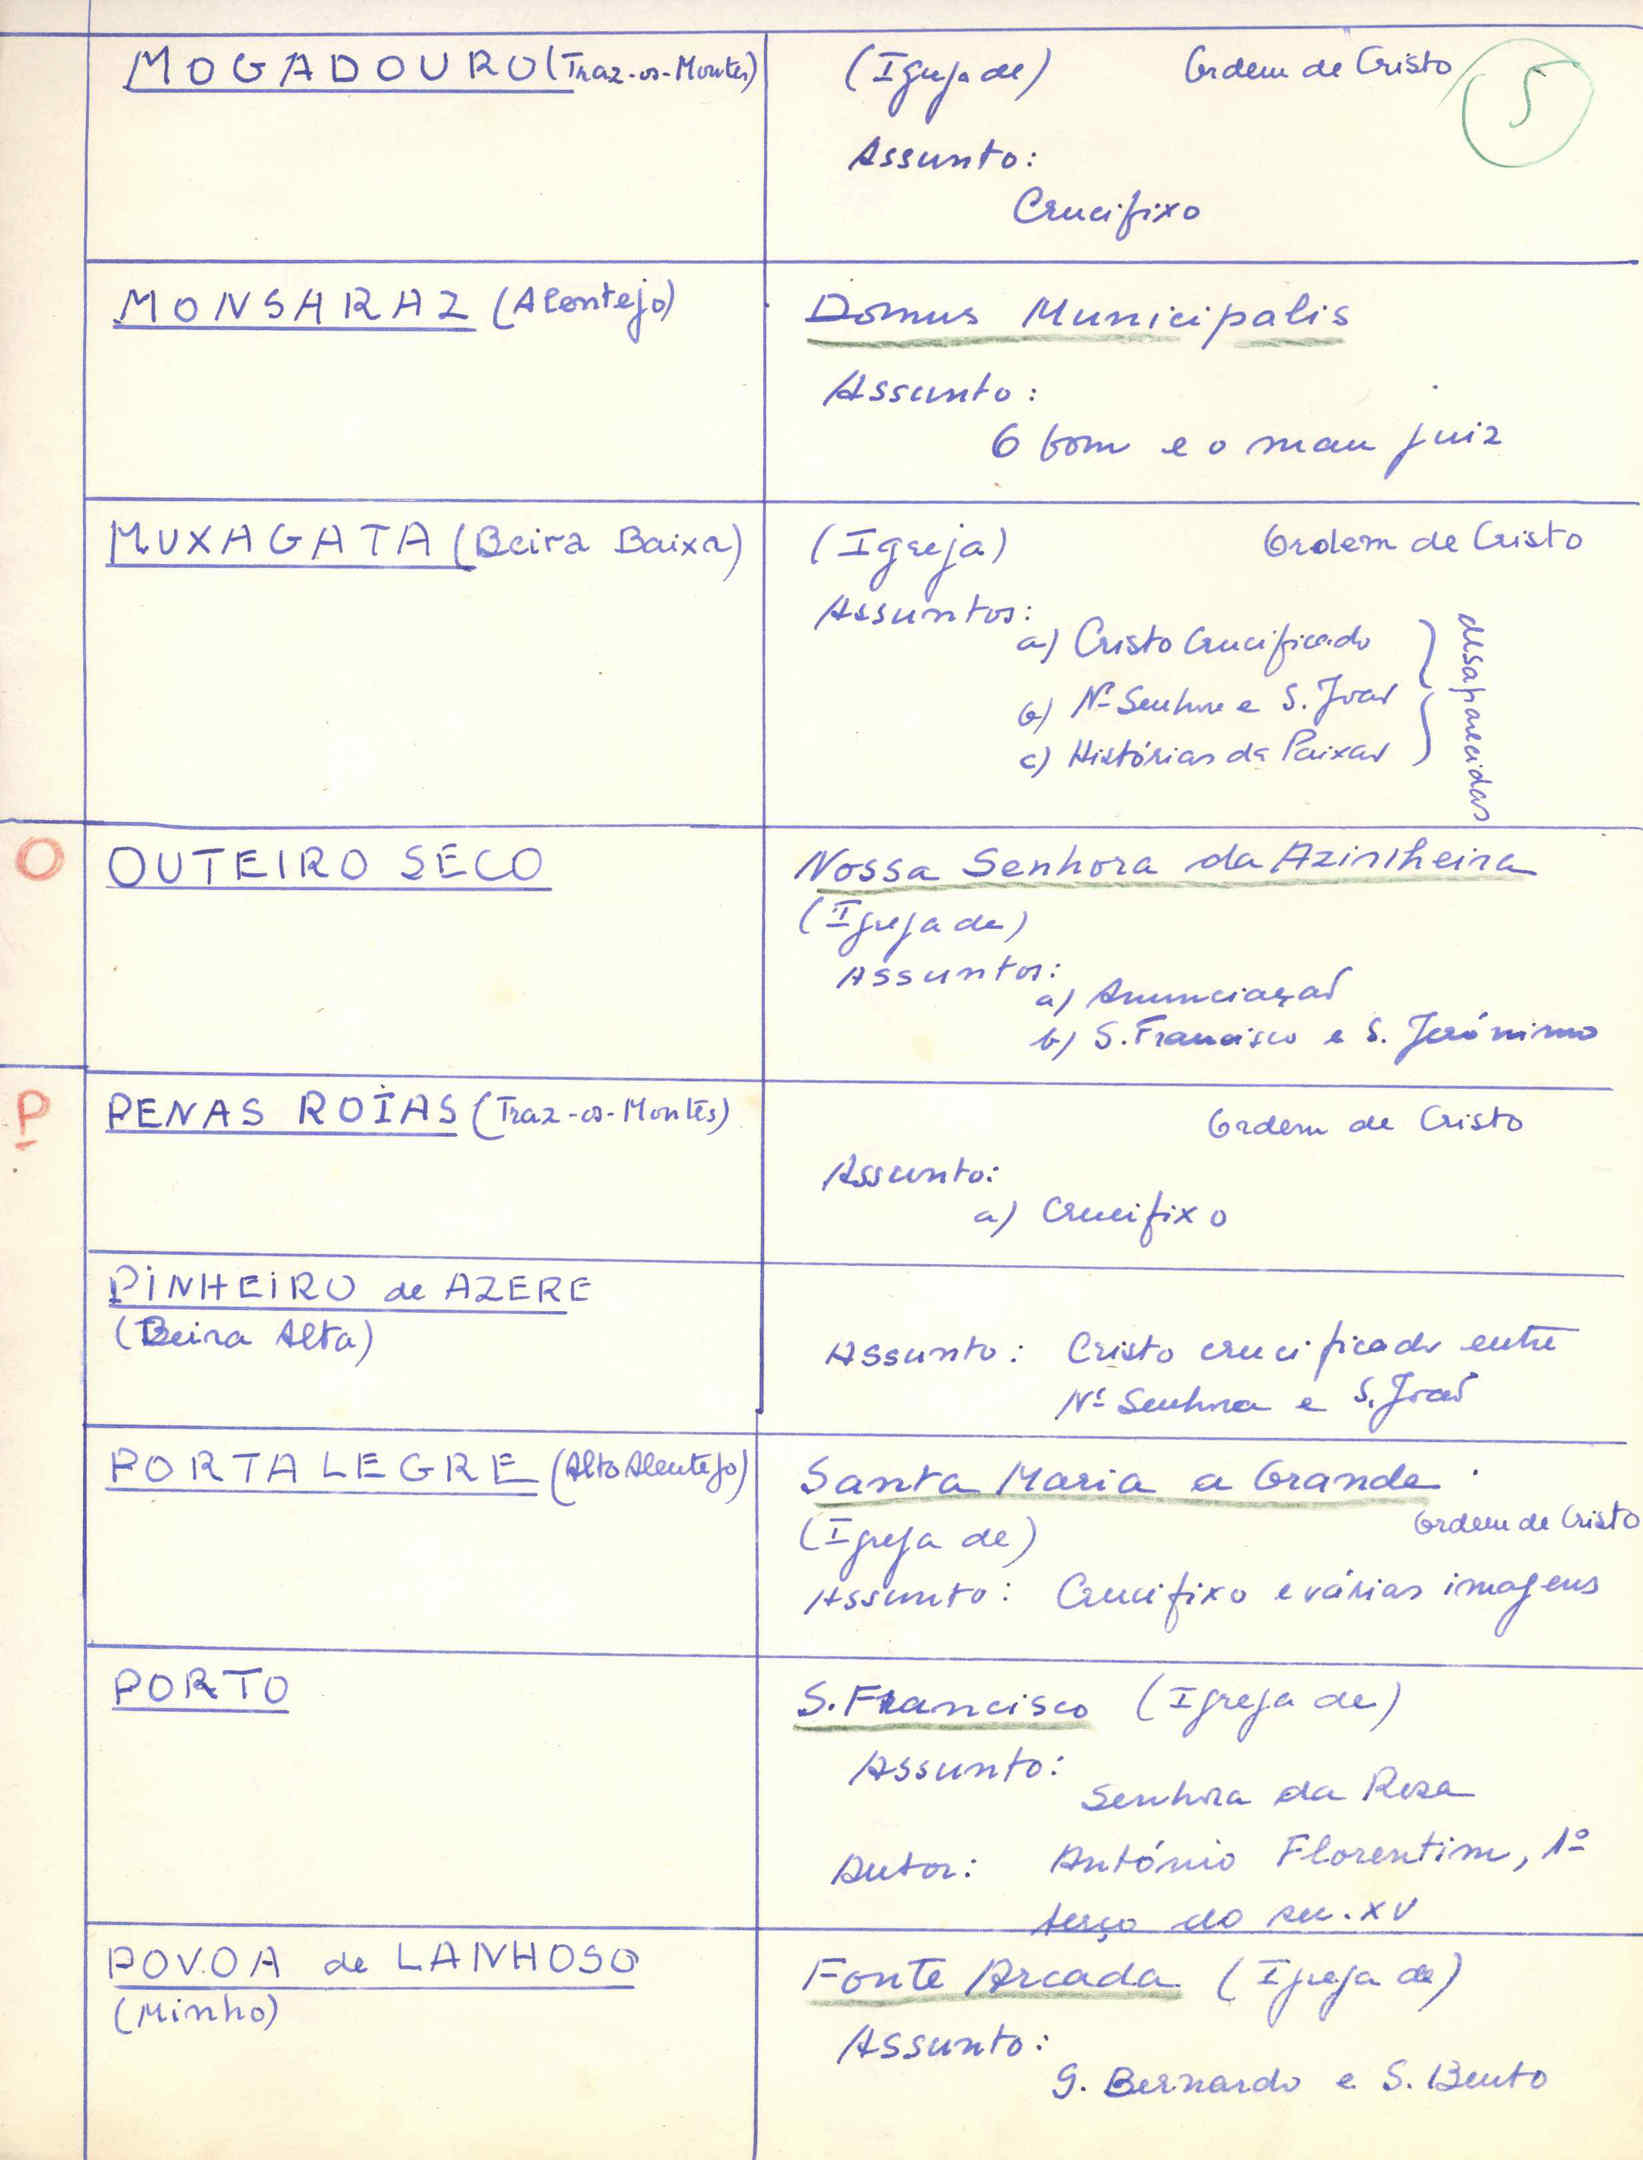 MOGADOURO (Traz-os-Montes)
(Igreja de) Ordem de Cristo
5
Assunto:
Crucifixo
MONSARAZ (Alentejo)
Domus Municipalis
Assunto:
O bom e o mau juiz
MUXAGATA (Beira Baixa)
(Igreja) Ordem de Cristo
Assuntos:
a) Cristo Crucificado
b) Nª Senhora e S. João
c) Histórias da Paixão
desaparecidas
O
OUTEIRO SECO
Nossa Senhora da Azinheira
(Igreja de)
Assuntos:
a) Anunciação
b) S. Francisco e S. Jerónimo
P
PENAS ROIAS (Traz-os-Montes)
Ordem de Cristo
Assunto:
a) Crucifixo
PINHEIRO de AZERE
(Beira Alta)
Assunto: Cristo crucificado entre
Nª Senhora e S. João
PORTALEGRE (Alto Alentejo)
Santa Maria a Grande
(Igreja de) Ordem de Cristo
Assunto: Crucifixo e várias imagens
PORTO
S. Francisco (Igreja de)
Assunto:
Senhora da Rosa
Autor: António Florentim, 1º
terço do sec. XV
POVOA de LANHOSO
(Minho)
Fonte Arcada (Igreja de)
Assunto:
S. Bernardo e S. Bento